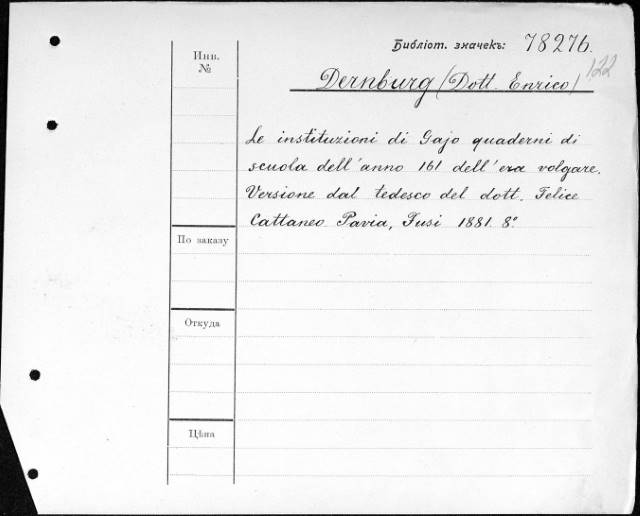 Библіот. значекъ: 78276.
122
Инв. №
Dernburg (Dott. Enrico)
Le instituzioni di Gajo quaderni di
scuola dell'anno 161 dell'era volgare.
Versione dal tedesco del dott. Felice
Cattaneo Pavia, Fusi 1881. 8°.
По заказу
Откуда
Цѣна